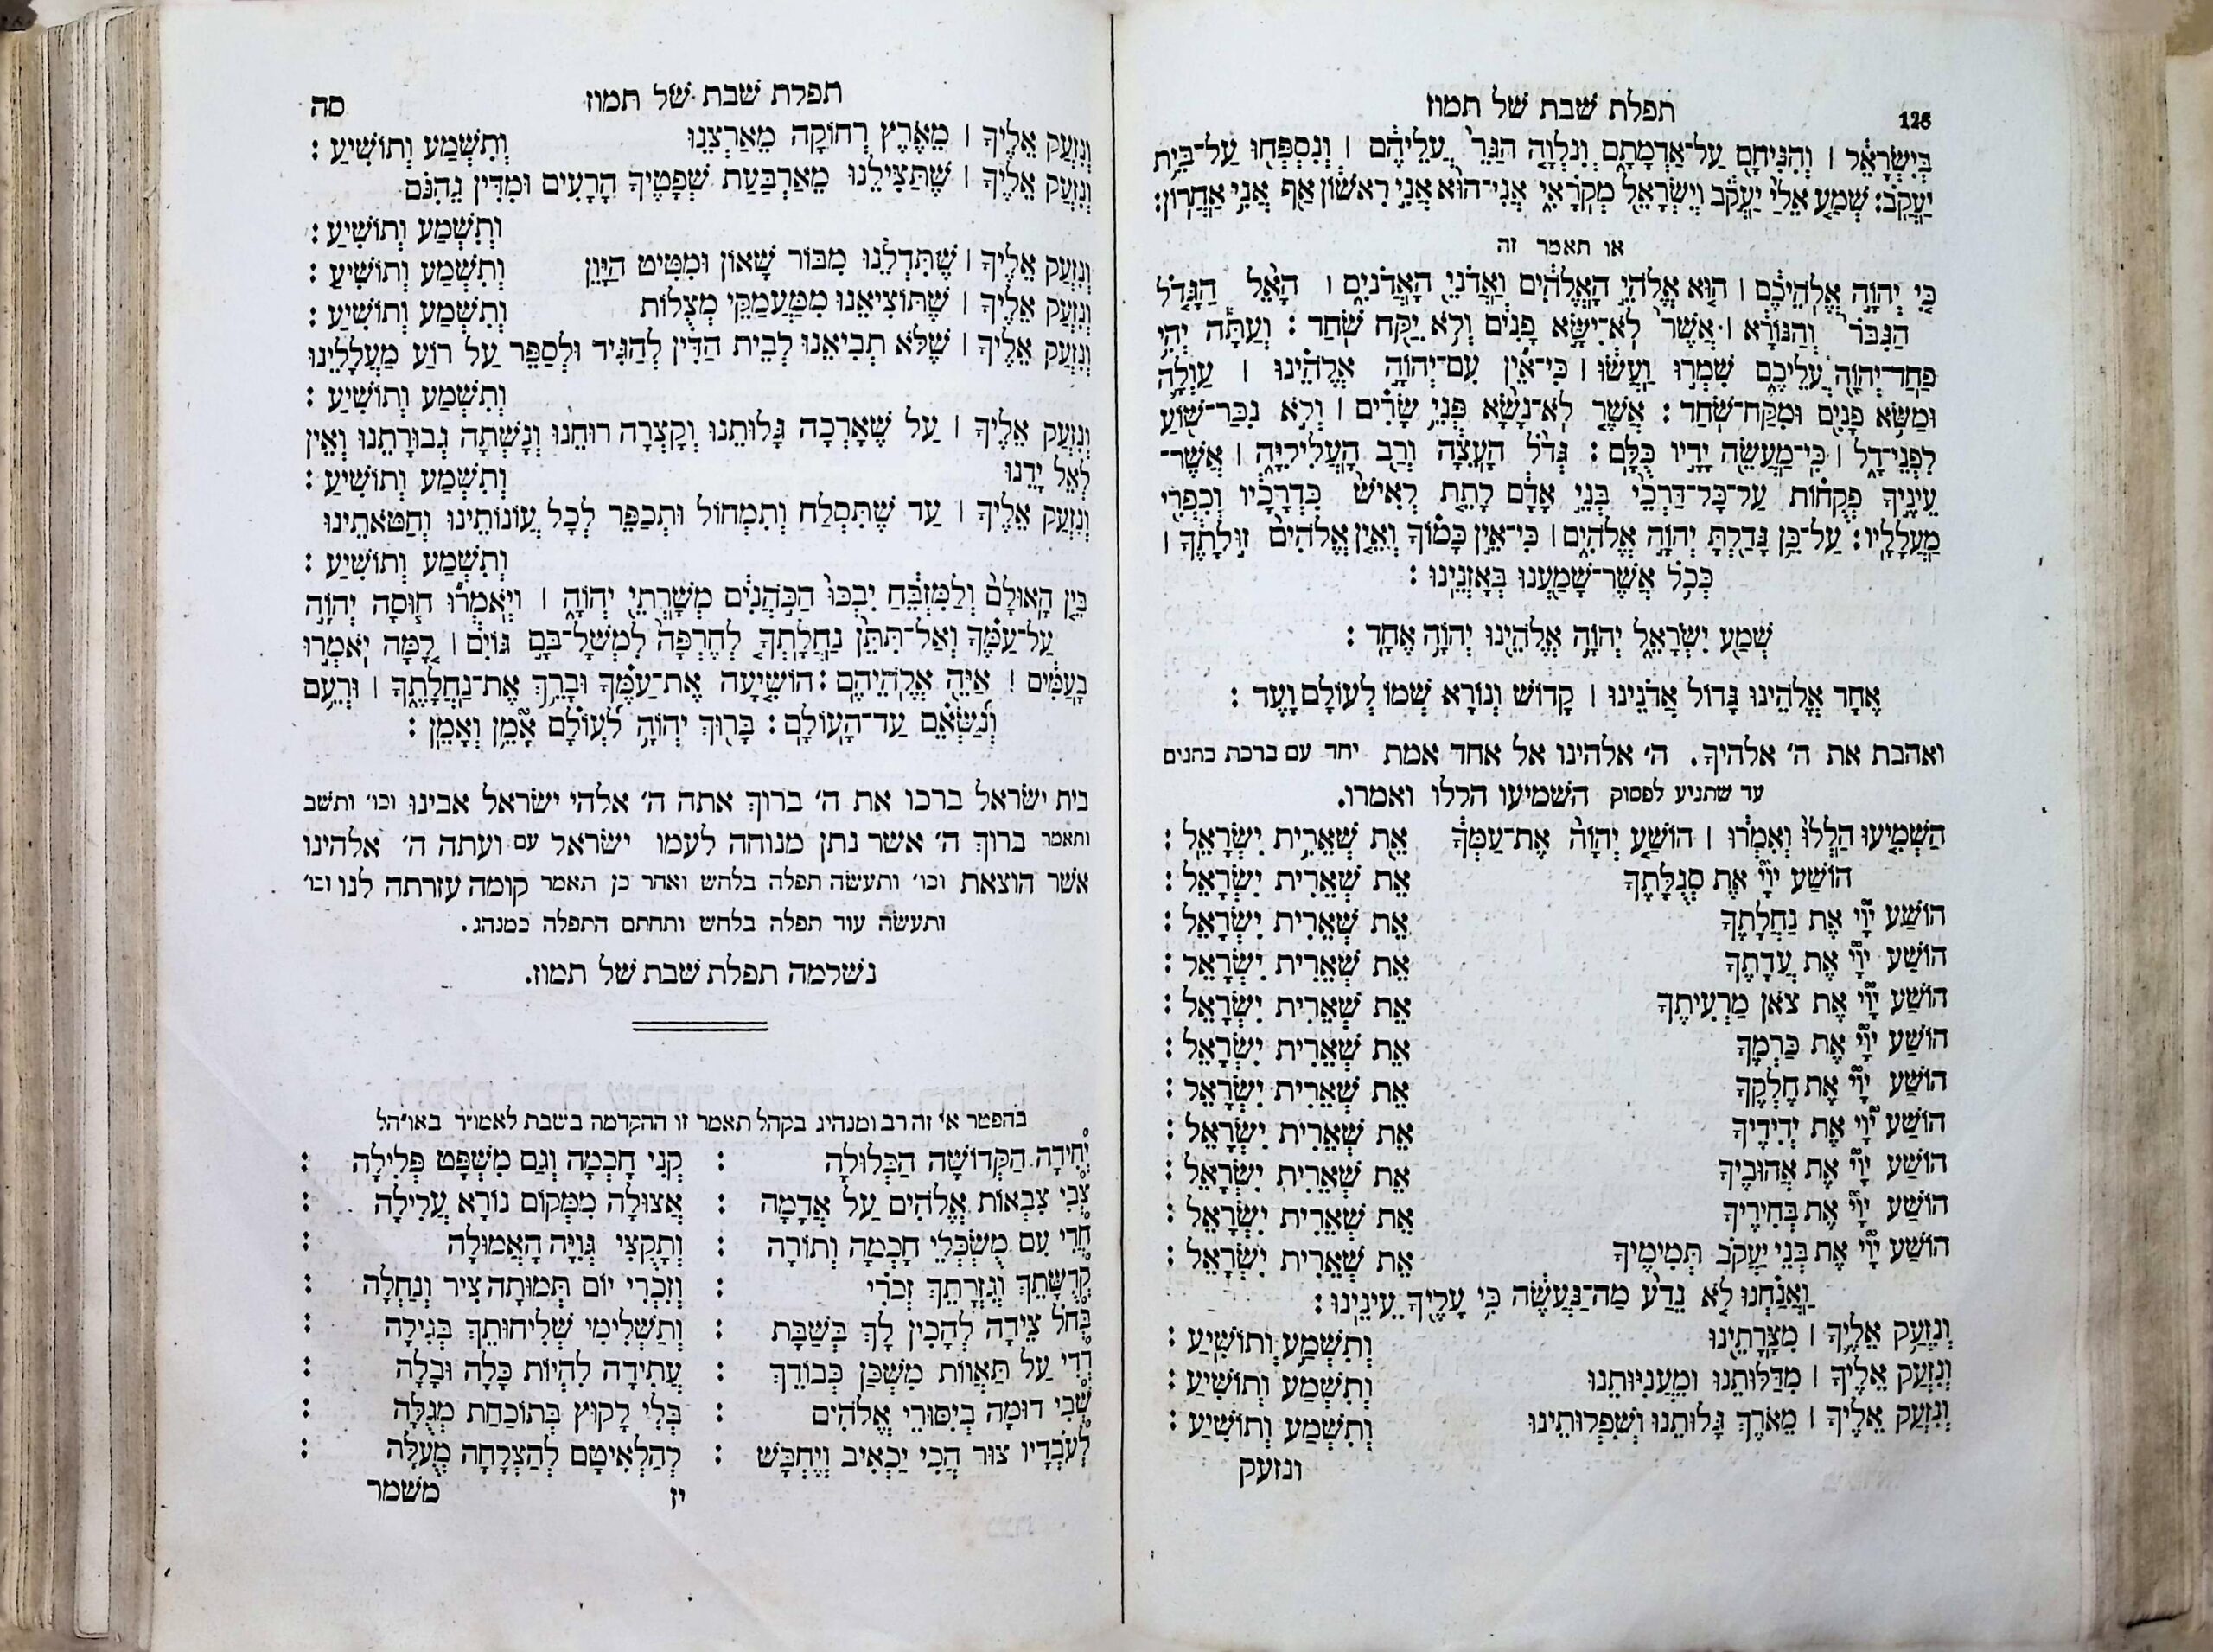 128 תפלת שבת של תמוז
בְּיִשְׂרָאֵל | וְהִנִּיחָם עַל־אַדְמָתָם וְנִלְוָה הַגֵּר עֲלֵיהֶם | וְנִסְפְּחוּ עַל־בֵּית
יַעֲקֹב: שְׁמַע אֵלַי יַעֲקֹב וְיִשְׂרָאֵל מְקֹרָאִי אֲנִי־הוּא אֲנִי רִאשׁוֹן אַף אֲנִי אַחֲרוֹן:
או תאמר זה
כִּי יְהוָה אֱלֹהֵיכֶם | הוּא אֱלֹהֵי הָאֱלֹהִים וַאֲדֹנֵי הָאֲדֹנִים | הָאֵל הַגָּדֹל
הַגִּבֹּר וְהַנּוֹרָא | אֲשֶׁר לֹא־יִשָּׂא פָנִים וְלֹא יִקַּח שֹׁחַד : וְעַתָּה יְהִי
פַחַד־יְהוָה עֲלֵיכֶם שִׁמְרוּ וַעֲשׂוּ | כִּי־אֵין עִם־יְהוָה אֱלֹהֵינוּ | עַוְלָה
וּמַשֹּׂא פָנִים וּמִקַּח־שֹׁחַד : אֲשֶׁר לֹא־נָשָׂא פְּנֵי שָׂרִים | וְלֹא נִכַּר־שׁוֹעַ
לִפְנֵי־דָל | כִּי־מַעֲשֵׂה יָדָיו כֻּלָּם : גְּדֹל הָעֵצָה וְרַב הָעֲלִילִיָּה | אֲשֶׁר־
עֵינֶיךָ פְקֻחוֹת עַל־כָּל־דַּרְכֵי בְּנֵי אָדָם לָתֵת לְאִישׁ כִּדְרָכָיו וְכִפְרִי
מַעֲלָלָיו : עַל־כֵּן גָּדַלְתָּ יְהוָה אֱלֹהִים | כִּי־אֵין כָּמוֹךָ וְאֵין אֱלֹהִים זוּלָתֶךָ |
כְּכֹל אֲשֶׁר־שָׁמַעְנוּ בְּאָזְנֵינוּ :
שְׁמַע יִשְׂרָאֵל יְהוָה אֱלֹהֵינוּ יְהוָה אֶחָד :
אֶחָד אֱלֹהֵינוּ גָּדוֹל אֲדֹנֵינוּ | קָדוֹשׁ וְנוֹרָא שְׁמוֹ לְעוֹלָם וָעֶד :
ואהבת את ה׳ אלהיך. ה׳ אלהינו אל אחד אמת יחד עם ברכת כהנים
עד שתגיע לפסוק השמיעו הללו ואמרו.
הַשְׁמִיעוּ הַלְלוּ וְאִמְרוּ | הוֹשַׁע יְהוָה אֶת־עַמְּךָ אֵת שְׁאֵרִית יִשְׂרָאֵל :
הוֹשַׁע יְוָי אֶת סְגֻלָּתֶךָ אֵת שְׁאֵרִית יִשְׂרָאֵל :
הוֹשַׁע יְוָי אֶת נַחֲלָתֶךָ אֵת שְׁאֵרִית יִשְׂרָאֵל :
הוֹשַׁע יְוָי אֶת עֲדָתֶךָ אֵת שְׁאֵרִית יִשְׂרָאֵל :
הוֹשַׁע יְוָי אֶת צֹאן מַרְעִיתֶךָ אֵת שְׁאֵרִית יִשְׂרָאֵל :
הוֹשַׁע יְוָי אֶת כַּרְמֶךָ אֵת שְׁאֵרִית יִשְׂרָאֵל :
הוֹשַׁע יְוָי אֶת חֶלְקֶךָ אֵת שְׁאֵרִית יִשְׂרָאֵל :
הוֹשַׁע יְוָי אֶת יְדִידֶיךָ אֵת שְׁאֵרִית יִשְׂרָאֵל :
הוֹשַׁע יְוָי אֶת אֲהוּבֶיךָ אֵת שְׁאֵרִית יִשְׂרָאֵל :
הוֹשַׁע יְוָי אֶת בְּחִירֶיךָ אֵת שְׁאֵרִית יִשְׂרָאֵל :
הוֹשַׁע יְוָי אֶת בְּנֵי יַעֲקֹב תְּמִימֶיךָ אֵת שְׁאֵרִית יִשְׂרָאֵל :
וַאֲנַחְנוּ לֹא נֵדַע מַה־נַּעֲשֶׂה כִּי עָלֶיךָ עֵינֵינוּ :
וְנִזְעַק אֵלֶיךָ | מִצָּרָתֵינוּ וְתִשְׁמַע וְתוֹשִׁיעַ :
וְנִזְעַק אֵלֶיךָ | מִדַּלּוּתֵנוּ וּמֵעֲנִיּוּתֵנוּ וְתִשְׁמַע וְתוֹשִׁיעַ :
וְנִזְעַק אֵלֶיךָ | מֵאֹרֶךְ גָּלוּתֵנוּ וְשִׁפְלוּתֵינוּ וְתִשְׁמַע וְתוֹשִׁיעַ :
ונזעק
תפלת שבת של תמוז סה
וְנִזְעַק אֵלֶיךָ | מֵאֶרֶץ רְחוֹקָה מֵאַרְצֵנוּ וְתִשְׁמַע וְתוֹשִׁיעַ :
וְנִזְעַק אֵלֶיךָ | שֶׁתַּצִּילֵנוּ מֵאַרְבַּעַת שְׁפָטֶיךָ הָרָעִים וּמִדִּין גֵּהִנֹּם
וְתִשְׁמַע וְתוֹשִׁיעַ :
וְנִזְעַק אֵלֶיךָ | שֶׁתִּדְלֵנוּ מִבּוֹר שָׁאוֹן וּמִטִּיט הַיָּוֵן וְתִשְׁמַע וְתוֹשִׁיעַ :
וְנִזְעַק אֵלֶיךָ | שֶׁתּוֹצִיאֵנוּ מִמַּעֲמַקֵּי מְצֻלוֹת וְתִשְׁמַע וְתוֹשִׁיעַ :
וְנִזְעַק אֵלֶיךָ | שֶׁלֹּא תְבִיאֵנוּ לְבֵית הַדִּין לְהַגִּיד וּלְסַפֵּר עַל רוֹעַ מַעֲלָלֵינוּ
וְתִשְׁמַע וְתוֹשִׁיעַ :
וְנִזְעַק אֵלֶיךָ | עַל שֶׁאָרְכָה גָּלוּתֵנוּ וְקָצְרָה רוּחֵנוּ וְנָשְׁתָה גְבוּרָתֵנוּ וְאֵין
לְאֵל יָדֵנוּ וְתִשְׁמַע וְתוֹשִׁיעַ :
וְנִזְעַק אֵלֶיךָ | עַד שֶׁתִּסְלַח וְתִמְחוֹל וּתְכַפֵּר לְכָל עֲוֹנוֹתֵינוּ וְחַטֹּאתֵינוּ
וְתִשְׁמַע וְתוֹשִׁיעַ :
בֵּין הָאוּלָם וְלַמִּזְבֵּחַ יִבְכּוּ הַכֹּהֲנִים מְשָׁרְתֵי יְהוָה | וְיֹאמְרוּ חוּסָה יְהוָה
עַל־עַמֶּךָ וְאַל־תִּתֵּן נַחֲלָתְךָ לְחֶרְפָּה לִמְשָׁל־בָּם גּוֹיִם | לָמָּה יֹאמְרוּ
בָעַמִּים | אַיֵּה אֱלֹהֵיהֶם : הוֹשִׁיעָה אֶת־עַמֶּךָ וּבָרֵךְ אֶת־נַחֲלָתֶךָ | וּרְעֵם
וְנַשְּׂאֵם עַד־הָעוֹלָם : בָּרוּךְ יְהוָה לְעוֹלָם אָמֵן וְאָמֵן :
בית ישראל ברכו את ה׳ ברוך אתה ה׳ אלהי ישראל אבינו וכו׳ ותשב
ותאמר ברוך ה׳ אשר נתן מנוחה לעמו ישראל עם ועתה ה׳ אלהינו
אשר הוצאת וכו׳ ותעשה תפלה בלחש ואחר כן תאמר קומה עזרתה לנו וכו׳
ותעשה עוד תפלה בלחש ותחתם התפלה כמנהג.
נשלמה תפלת שבת של תמוז.
בהפטר אי זה רב ומנהיג בקהל תאמר זו ההקדמה בשבת לאמויר באו״הל
יְחִידָה הַקְּדוֹשָׁה הַכְּלוּלָה : קְנִי חָכְמָה וְגַם מִשְׁפָּט פְּלִילָה :
צְבִי צִבְאוֹת אֱלֹהִים עַל אֲדָמָה : אֲצוּלָה מִמְּקוֹם נוֹרָא עֲלִילָה :
חֲדִי עִם מַשְׂכְּלֵי חָכְמָה וְתוֹרָה : וְתָקֻצִי גְּוִיָּה הָאֲמוּלָה :
קְדֻשָּׁתֵךְ וְגִזְרָתֵךְ זְכֹרִי : וְזִכְרִי יוֹם תְּמוּתָה צִיר וְנַחְלָה :
בְּחֹל צֵידָה לְהָכִין לָךְ בְּשַׁבָּת : וְתַשְׁלִימִי שְׁלִיחוּתֵךְ בְּגִילָה :
רְדִי עַל תַּאֲוֹות מִשְׁכַּן כְּבוֹדֵךְ : עֲתִידָה לִהְיוֹת כָּלָה וּבָלָה :
שְׁבִי דוּמָה בְיִסּוּרֵי אֱלֹהִים : בְּלִי לָקוּץ בְּתוֹכַחַת מְגֻלָּה :
לְעֹבְדָיו צוּר הֲכִי יַכְאִיב וְיֶחְבָּשׁ : לְהַלְאִיטָם לְהַצְרָחָה מְעֻלָּה :
יז משמר